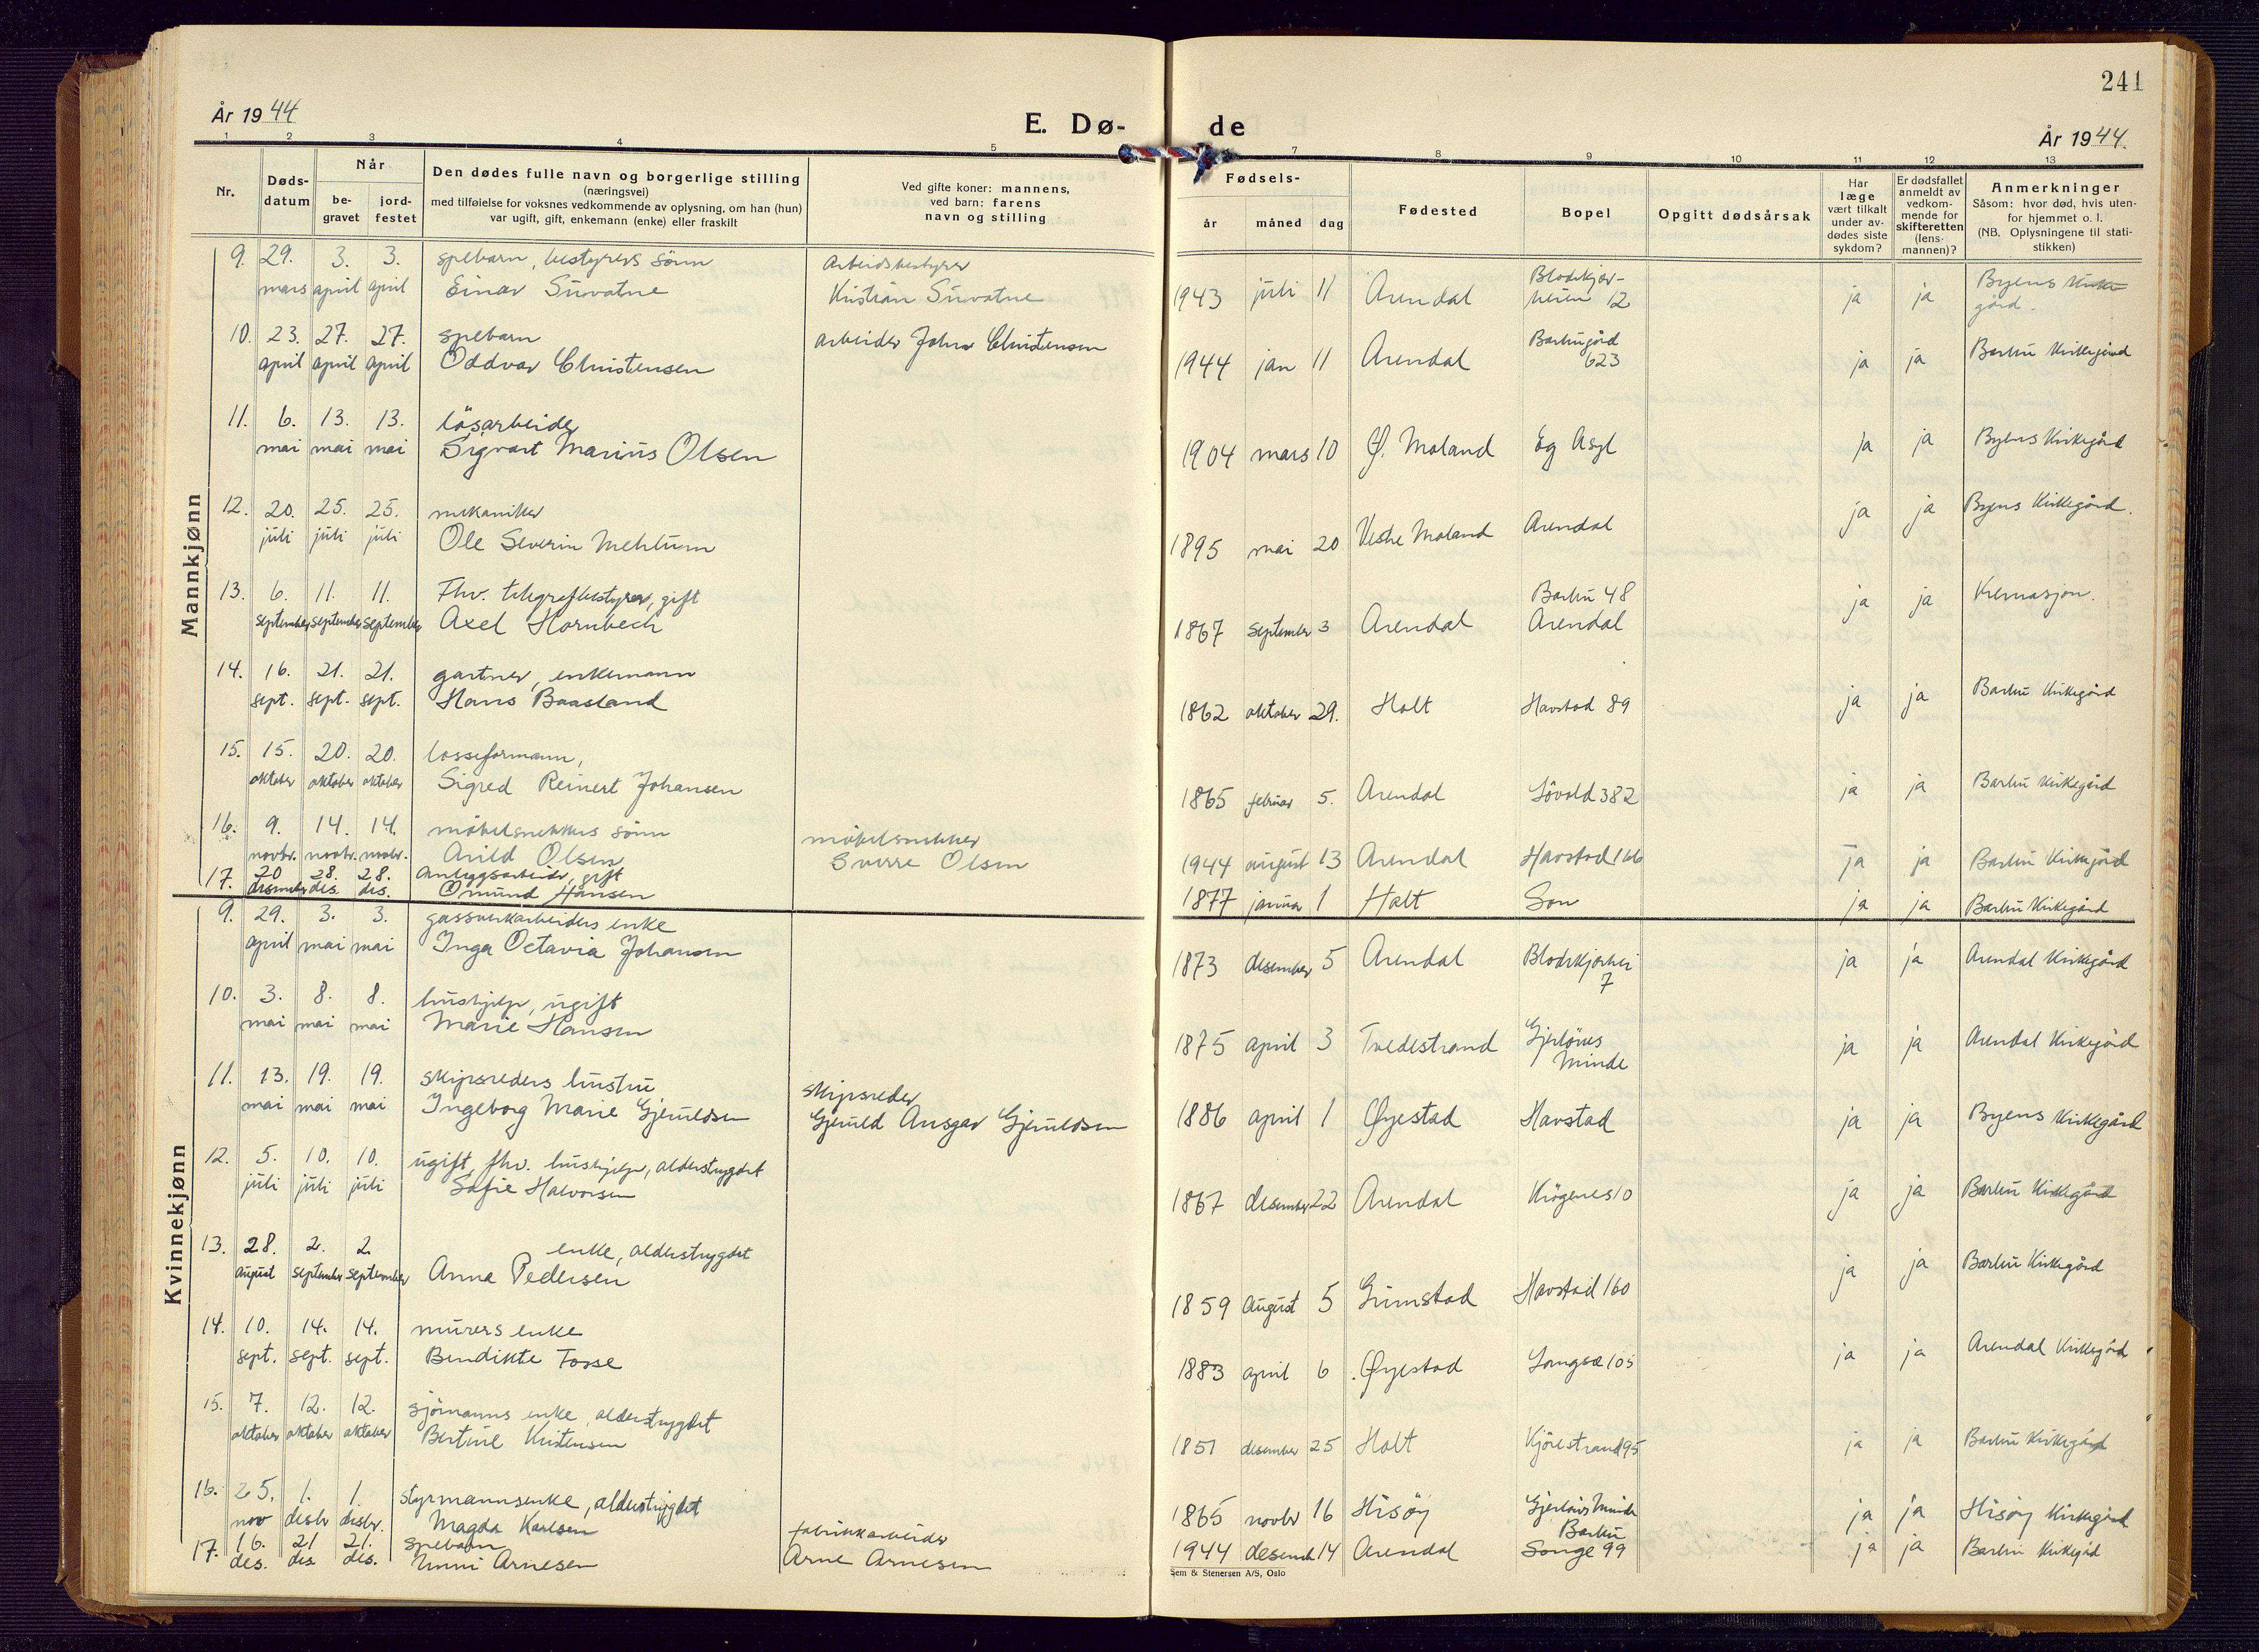 241
År 1944
E. Dø-
de
År 1944.
1 2 3 4 5 7 8 9 10 11 12 13
Nr.
Døds-
datum
Når
be-
gravet
jord-
festet
Den dødes fulle navn og borgerlige stilling
(næringsvei)
med tilføielse for voksnes vedkommende av oplysning, om han (hun)
var ugift, gift, enkemann (enke) eller fraskilt
Ved gifte koner: mannens,
ved barn: farens
navn og stilling
Fødsels-
år måned dag
Fødested
Bopel
Opgitt dødsårsak
Har
læge
vært tilkalt
under av-
dødes siste
sykdom?
Er dødsfallet
anmeldt av
vedkom-
mende for
skifteretten
(lens-
mannen)?
Anmerkninger
Såsom: hvor død, hvis uten-
for hjemmet o. l.
(NB. Oplysningene til stati-
stikken)
Mannkjønn
9. 29. 3. 3. spebarn, bestyrers sönn Arbeidsbestyrer Blødekjær-
mars april april Einar Kristian 1943 juli 11 Arendal heien 12 ja ja Byens Kirke
gård.
10. 23. 27. 27. spebarn arbeider John Christensen Barbugård
april april april Oddvar Christensen 1944 jan 11 Arendal 623 ja ja Barbu Kirkegård
11. 6. 13. 13. lösarbeider
mai mai mai Sigvart Marius Olsen 1904 mars 10 Ø. Moland Eg Asyl ja ja Byens Kirkegård
12. 20. 25. 25. mekaniker
juli juli juli Ole Severin Mehlum 1895 mai 20 Vestre Moland Arendal ja ja Byens Kirkegård.
13. 6. 11. 11. Fhv. telegrafbestyrer, gift Barbu 48
september september september Axel Hornbech 1867 september 3 Arendal Arendal ja ja Kremasjon.
14. 16. 21. 21. gartner, enkemann
sept. sept. sept. Hans Baasland 1862 oktober 29. Holt Havstad 89 ja ja Barbu Kirkegård
15. 15. 20. 20. losseformann,
oktober oktober oktober Sigred Reinert Johansen 1865 februar 5. Arendal Lövold 382 ja ja Barbu Kirkegård
16. 9. 14. 14. möbelsnekkers sönn möbelsnekker
novbr. novbr. novbr. Arild Olsen Sverre Olsen 1944 august 13 Arendal Havstad 166 ja ja Barbu Kirkegård
17. 20 28. 28. Anleggsarbeider, gift
desember des. des. Omund Hansen 1877 januar 1 Holt Son ja ja Barbu Kirkegård
Kvinnekjønn
9. 29. 3. 3. gassverkarbeiders enke
april mai mai Inga Octavia Johansen 1873 desember 5 Arendal Blødekjærhei
7 ja ja Arendal Kirkegård
10. 3. 8. 8. hushjelp, ugift
mai mai mai Marie Hansen 1875 april 3 Tvedestrand Gjerlöws
Minde ja ja Arendal Kirkegård
11. 13. 19. 19. skipsreders hustru skipsreder
mai mai mai Ingeborg Marie Gjeruldsen Gjeruld Ansgar Gjeruldsen 1886 april 1 Øyestad Havstad ja ja Byens Kirkegård
12. 5. 10. 10. ugift, fhv. hushjelp, alderstrygdet
juli juli juli Sofie Halvorsen 1867 desember 22 Arendal Krögenes 10 ja ja Barbu Kirkegård
13. 28. 2. 2. enke, alderstrygdet
august september september Anna Pedersen 1859 august 5 Grimstad Havstad 160 ja ja Barbu Kirkegård
14. 10. 14. 14. murers enke
sept. sept. sept. Bendikte Fosse 1883 april 6 Øyestad Langsæ 105 ja ja Arendal Kirkegård
15. 7. 12. 12. sjömanns enke, alderstrygdet
oktober oktober oktober Bertine Kristensen 1851 desember 25 Holt Kjörestrand 95 ja ja Barbu Kirkegård
16. 25. 1. 1. styrmannsenke, alderstrygdet Gjerlöws Minde
nov desbr desbr. Magda Karlsen 1865 novbr 16 Hisöy Barbu ja ja Hisöy Kirkegård
17. 16. 21 21. spebarn fabrikkarbeider
des. des. des. Unni Arnesen Arne Arnesen 1944 desemb 14 Arendal Songe 99 ja ja Barbu Kirkegård
Sem & Stenersen A/S, Oslo